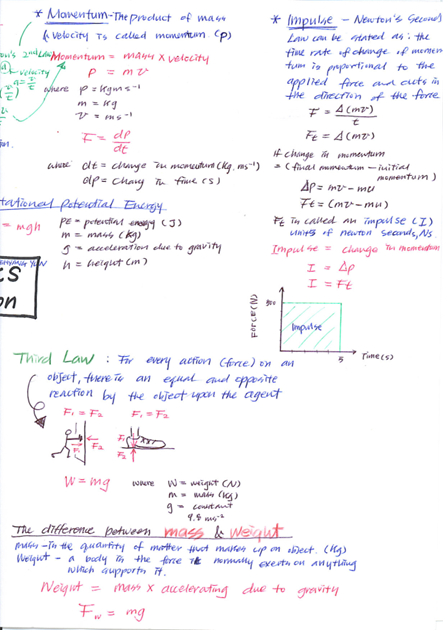 * Momentum - The product of mass
& velocity is called momentum (p)
Momentum = mass x velocity
P = mv
where p = kgms⁻¹
m = kg
v = ms⁻¹
F = dp/dt
where dt = change in momentum (kg.ms⁻¹)
dp = chang in time (s)
tational Potential Energy
= mgh
PE = potential energy (J)
m = mass (kg)
g = acceleration due to gravity
h = height (m)
cs
on
* Impulse - Newton's Second
Law can be stated as: the
time rate of change of momen
tum is proportional to the
applied force and acts in
the direction of the force
F = Δ(mv)/t
Ft = Δ(mv)
if change in momentum
= (final momentum - initial
momentum)
Δp = mv - mu
Ft = (mv - mu)
Ft is called an impulse (I)
units of newton seconds, Ns
Impulse = change in momentum
I = Δp
I = Ft
Force (N)
500
Impulse
5
Time (s)
Third Law : For every action (force) on an
object, there is an equal and opposite
reaction by the object upon the agent
F₁ = F₂ F₁ = F₂
F₁ F₂ F₁
F₂
W = mg where W = weight (N)
m = mass (kg)
g = constant
9.8 ms⁻²
The difference between mass & weight
mass - is the quantity of matter that makes up an object. (kg)
Weight - a body is the force it normally exerts on anything
which supports it.
Weight = mass x accelerating due to gravity
Fw = mg